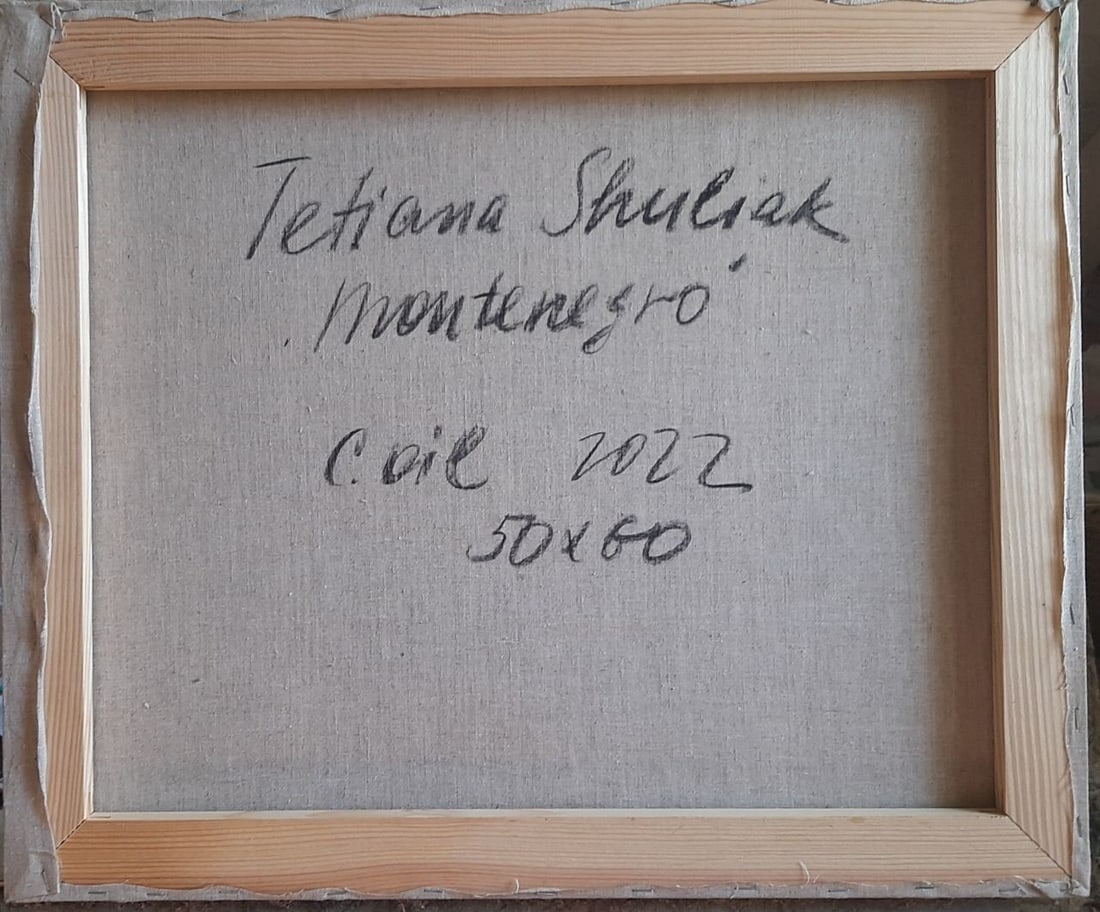 Tetiana Shuliak
Montenegro
C. oil 2022
50x60